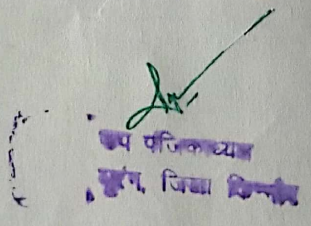 उप पंजिकाध्यक्ष
मूरंग, जिला किन्नौर